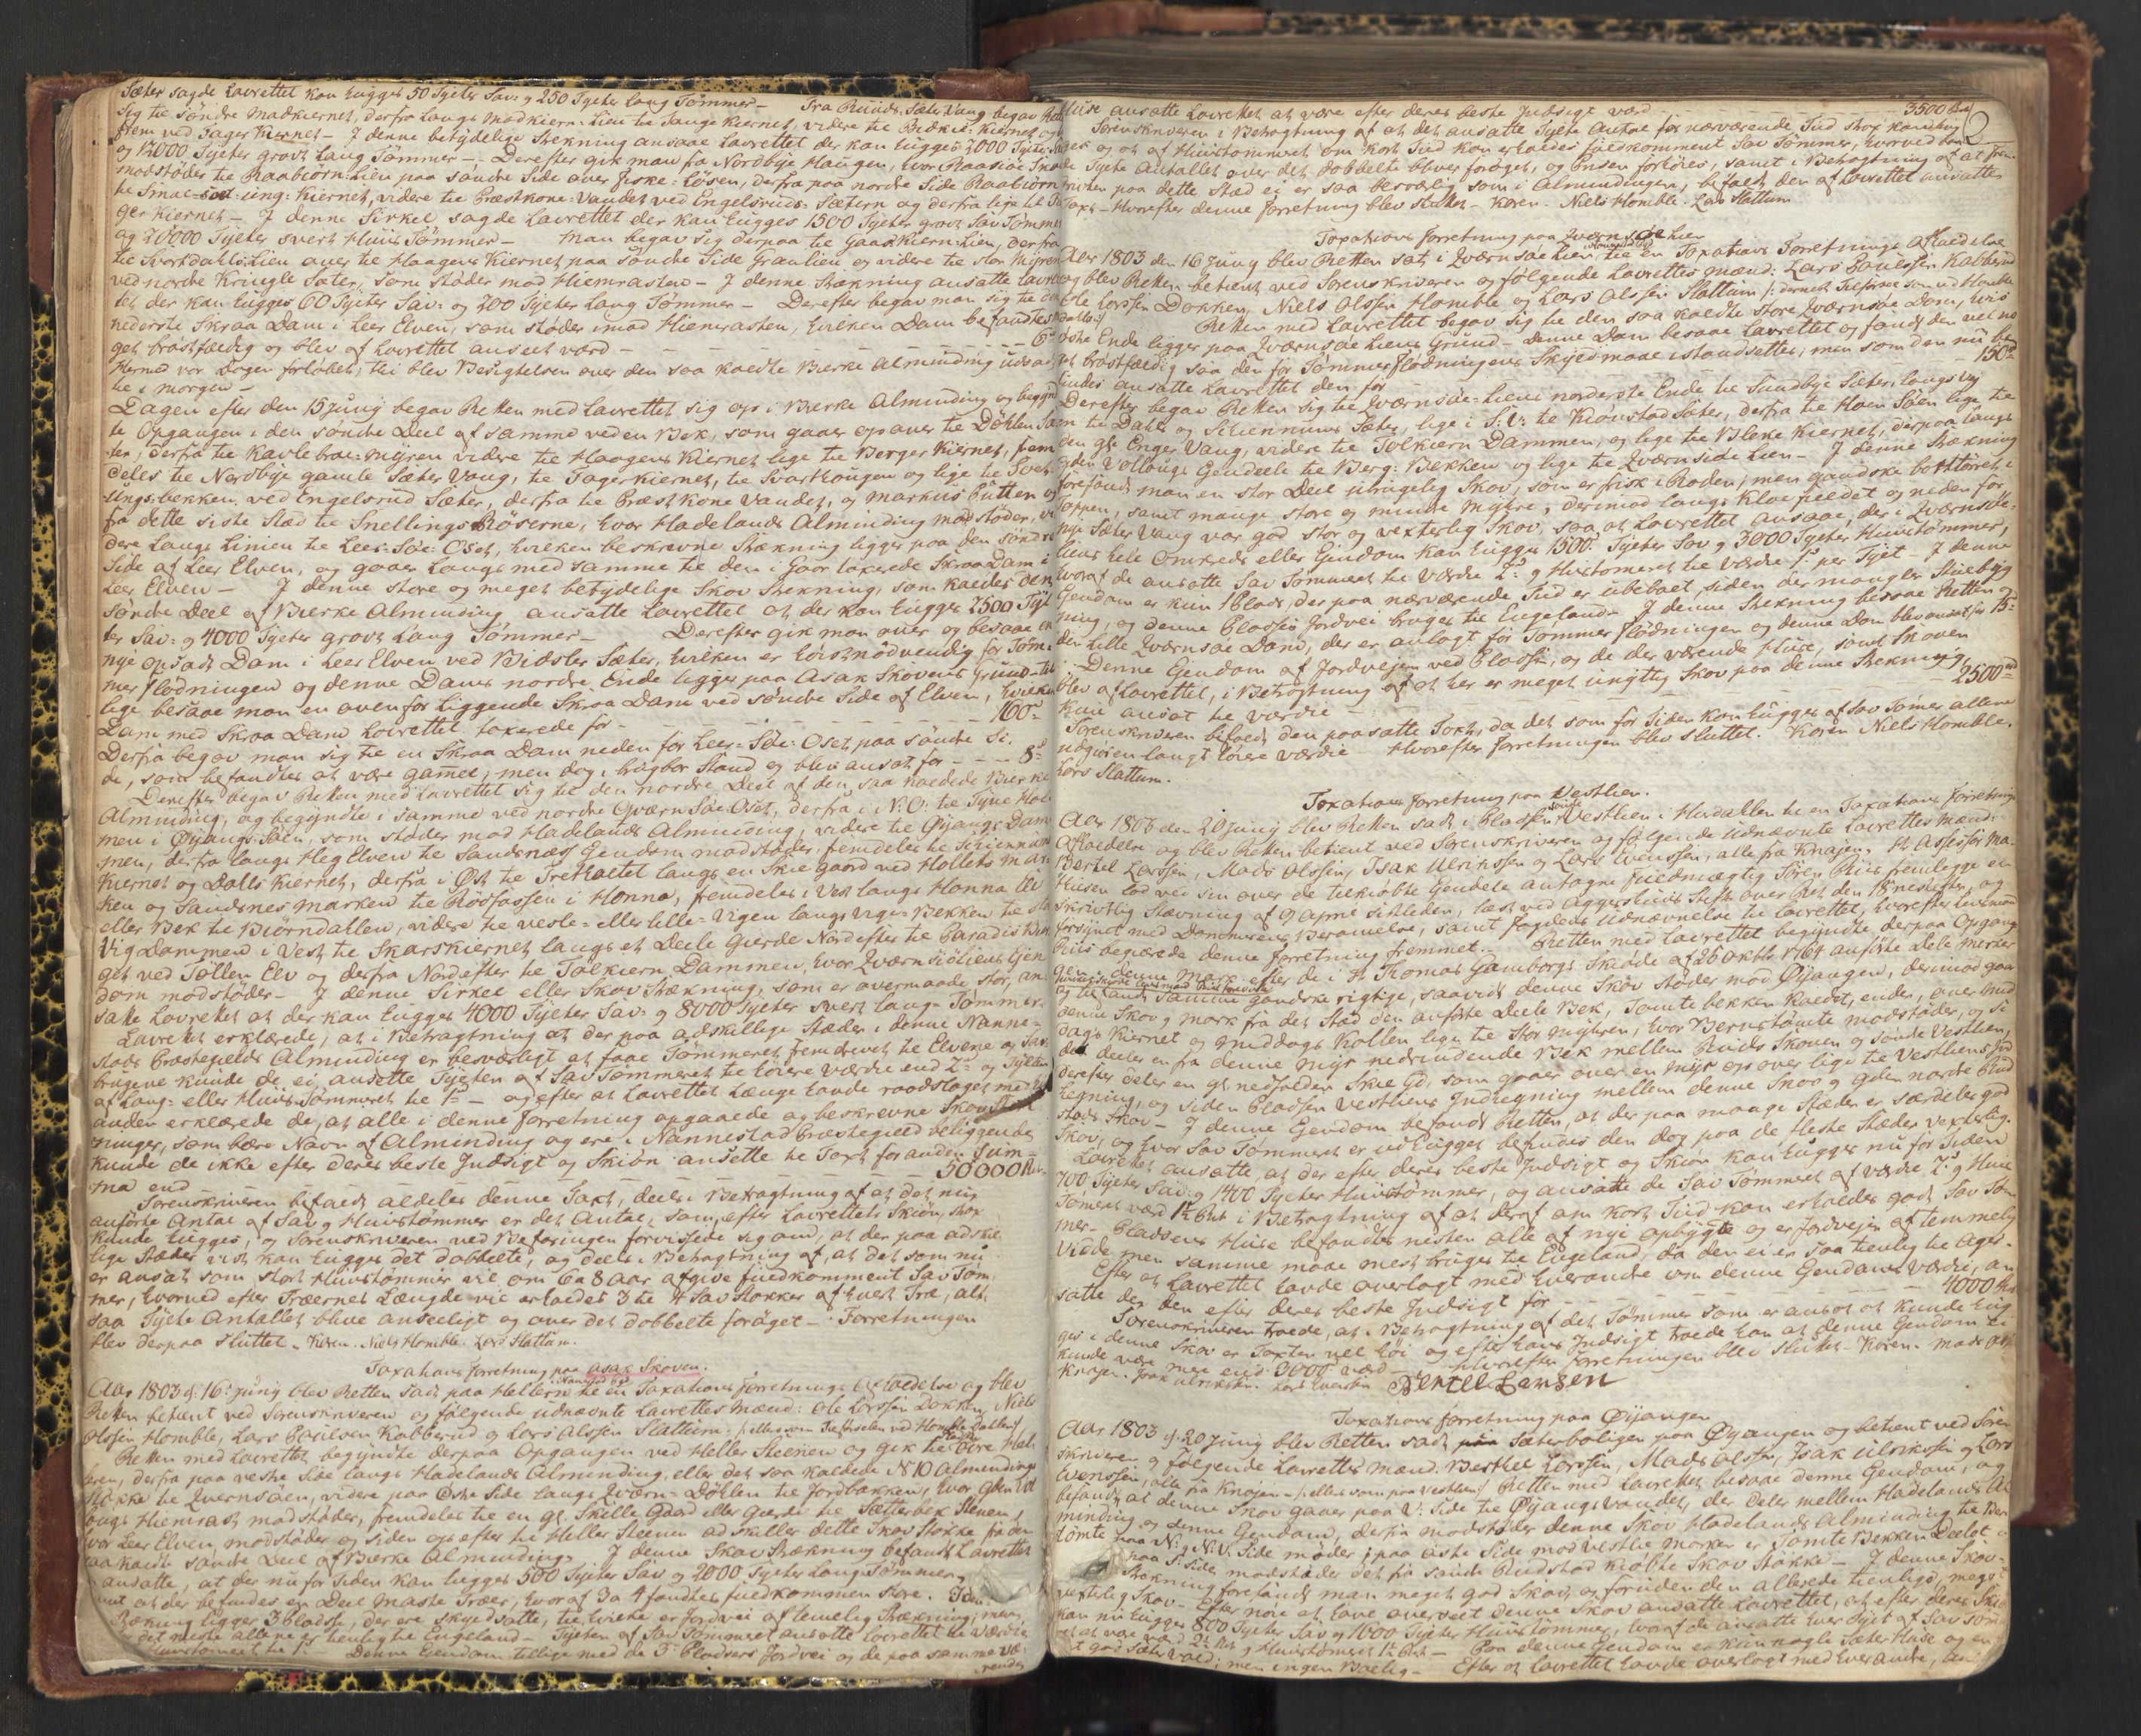 Sæter sagde Lavrettet kan hugges 50 Tylter Sav- og 250 Tylter lang Tømmer— Fra Ruuds Sæter Vang begav Ret
sig til søndre Madkiernet, derfra langs Madkiern-Lien til Lange Kiernet, videre til Bidkie-Kiernet og
frem ved Tager Kiernet— I denne betydelige Strekning ansaae Lavrettet der kan hugges 2000 Tylter
og 12000 Tylter grovt Lang Tømmer— Derefter gik man fra Nordbye Haugen, hvor Raasiøe
modstøder til Raabiørn-Lien paa søndre Side over Fiske-Løsen, derfra paa nordre Side Raabiørn
til Smaae- Kiernet, videre til Præstkone-Vandet ved Engelsruds Sætern og derfra lige til Ta
ger Kiernet— I denne Sirkel sagde Lavrettet der kan hugges 1500 Tylter grovt Sav Tømmer
og 20000 Tylter svert Huus Tømmer— Man begav sig derpaa til Gaaskiern-Lien, derfra
til Svartdahls-Lien over til Haagens Kiernet paa søndre Side Granlien og videre til stor Myren
ved nordre Kringle Sæter, som støder mod Hiemrasten— I denne Strekning ansatte Lavret
tet der kan hugges 60 Tylter Sav- og 200 Tylter Lang Tømmer— Derefter begav man sig til
nederste Skraa Dam i Leer Elven, som støder imod Hiemrasten, hvilken Dam befandtes
get brøstfældig og blev af Lavrettet anseet værd — — — 6
Hermed var Dagen forløbet, thi blev Besigtelsen over den saa kaldte Bierke Alminding udsadt
til i morgen—
Dagen efter den 15 Junij begav Retten med Lavrettet sig op i Bierke Alminding og begyn
te Opgangen i den søndre Deel af samme ved en Bek, som gaaer op over til Døhlen
ter, derfra til Kavlebroe-Myren videre til Haagens Kiernet lige til Berger Kiernet, frem
deles til Nordbye gamle Sæter Vang, til Tagerkiernet, til Svarthougen og lige til Svet
ungs-bekken, ved Engelsrud Sæter, derfra til Præstkone Vandet, og Markus Putten og
fra dette siste Stæd til Snellings Røserne, hvor Hadelands Alminding modstøder, vi
dere langs Linien til Leer-Søe-Oset, hvilken beskrevne Strækning ligger paa den søndre
Side af Leer Elven, og gaaer langs med samme til den i Gaar taxerede Skraa Dam i
Leer Elven— I denne store og meget betydelige Skov Strekning, som kaldes den
søndre Deel af Bierke Alminding ansatte Lavrettet at der kan hugges 2500 Tyl
ter Sav- og 4000 Tylter grovt Lang Tømmer— Derefter gik man over og besaae en
nye opsadt Dam i Leer Elven ved Bidsler Sæter, hvilken er høistnødvendig for Tøm
mer flødningen og denne Dams nordre Ende ligger paa Asak Skovens Grund— til
lige besaae man en ovenfor liggende Skraa Dam ved søndre Side af Elven, hvilken
Dam med Skraa Dam Lavrettet taxerede for — — — 100
Derfra begav man sig til en Skraa Dam neden for Leer-Søe-Oset paa søndre Si-
de, som befandtes at være gamel, men dog i brugbar Stand og blev ansat for — — 8
Derefter begav Retten med Lavrettet sig til den nordre Deel af den saa kaldede Bierke
Alminding, og begyndte i samme ved nordre Qværn Søe Oset, derfra i N.O. til Tyve Hol
men i Øyangs-Søen, som støder mod Hadelands Alminding, videre til Øyangs Dam
men, derfra langs Heg Elven til Sandsnæs Gendom modstøder, fremdeles til Schiennum
Kiernet og Dalls Kiernet, derfra i Øst til Trehaltet langs en Skie gaard ved Hollets Mar
ken og Sandsnes Marken til Røsfossen i Honna, fremdeles i Vest langs Honna til
eller Bek til Biørndallen, videre til vesle- eller lille-Vigen langs Vigs-Bekken til
Vig Dammen i Vest til Skarskiernet langs et Deele Gierde Nordefter til Paradis
get ved Tøllen Elv og derfra Nordefter til Tølkiern Dammen, hvor Qværnsiøliens Gjen
dom modstøder— I denne Sirkel eller Skov Strækning, som er overmaade stor, an
satte Lavrettet at der kan hugges 4000 Tylter Sav- og 8000 Tylter svert lang-Tømmer.
Lavrettet erklærede, at i Betragtning at der paa adskillige Stæder i denne Nanne-
stads Præstegields Alminding er besværligt at faae Tømmeret fremdrevet til Elvene og Sav
brugene kunde de ei ansette Tylten af Sav Tømmeret til høiere Værdie end 2 og Tylten
af Lang- eller Huus-Tømmeret til 1 — og efter at Lavrettet længe havde raadslaget med hver
anden erklærede de, at alle i denne Forretning opgaaede og beskrevne Skov Stræk
ninger, som bære Navn af Alminding og ere i Nannestad Præstegield beliggende,
kunde de ikke efter deres beste Indsigt og Skiøn ansette til Taxt for anden Sum-
ma end — — — 50000 Rdr.
Sorenskriveren befandt aldeles denne Taxt, deels i Betragtning af at det nu
anførte Antal af Sav og Huustømmer er det Antal, som, efter Lavrettets Skiøn, strax
kunde hugges, og Sorenskriveren ved Befaringen forvissede sig om, at der paa adskil
lige Stæder vist kan hugges det dobbelte, og deels i Betragtning af, at det som nu
er ansat som stort Huustømmer vil om 6 a 8 Aar afgive fuldkomment Sav Tøm
mer, hvorved efter Træernes Længde vil erholdes 3 til 4 Sav Stokker af hvert Træ, alt
saa Tylte Antallet blive anseeligt og over det dobbelte forøget— Forretningen
blev derpaa sluttet. Koren. Niels Homble. Lars Slattum.
Taxations Forretning paa Asak Skoven.
i Nanestad
Aar 1803 d. 16 Junij blev Retten sadt paa Hellern til en Taxations Forretnings Afholdelse og blev
Retten betient ved Sorenskriveren og følgende udnævnte Lavrettes Mænd: Ole Larssen Dokken, Niels
Olssen Homble, Lars Povelsen Kabberud og Lars Olssen Slattum
Retten med Lavrettet begyndte derpaa Opgangen ved Heller Steenen og gik til øvre Hel
leren, derfra paa vestre Side langs Hadelands Alminding, eller det saa kaldede N 10 Almindings
støkke til Qvernsøen, videre paa østre Side langs Qværn-Døhlen til Jordbakken, hvor
ougs Hiemrast modstøder, fremdeles til en gl. Skille Gaard eller Gierde til Sætterbek Stenen,
hvor Leer Elven modstøder og siden op efter til Heller Steenen adskiller dette Skov Støkke fra den
saa kaldte søndre Deel af Bierke Alminding. I denne Skov Strækning befandt Lavrettet
ansatte, at der nu for tiden kan hugges 500 Tylter Sav og 2000 Tylter Lang Tømmer,
samt at der befindes en Deel Maste Træer, hvoraf 3 a 4 fandtes fuldkommen store. I den
Strækning ligger 3 Pladse, der ere skyldsatte, til hvilke er Jordvei af temelig Strækning; men
det meste allene er tienlig til Engeland— Tylten af Sav Tømmeret ansatte Lavrettet til Værdie
Huustømeret til 1 Denne Gendom tillige med de 3 Pladsers Jordvei og de paa samme væ-
rende
Huse ansatte Lavrettet at være efter deres beste Indsigt værd — 3500 Rdr
2
Sorenskriveren i Betragtning af at det ansatte Tylte Antal for nærværende Tiid strax kan hug
ges og at af Huustømmeret om kort Tiid kan erholdes fuldkomment Sav Tømmer, hvorved
Tylte Antallet over det dobbelte bliver forøget, og Prisen forhøies, samt i Betragtning af at
paa dette Stæd ei er saa besværlig som i Almindingen, befandt den af Lavrettet ansatte
Taxt— Hvorefter denne Forretning blev sluttet— Koren. Niels Homble. Lars Slattum
Taxations Forretning paa Qværnsøe Lien
Aar 1803 den 16 Juny blev Retten sat i Qværnsøe Lien til en Taxations Forretnings Afholdelse
og blev Retten betient ved Sorenskriveren og følgende Lavrettes Mænd: Lars Poulssen Kabberud
Ole Larssen Dokken, Niels Olssen Homble og Lars Olssen Slattum
Retten med Lavrettet begav sig til den saa kaldte store Qværnsøe Dam, hvis
østre Ende ligger paa Qværnsøe Liens Grund— Denne Dam besaae Lavrettet og fandt den vel no
get brøstfældig saa den for Tømmerflødningens Skyld maae istandsettes, men som den nu be
findes ansatte Lavrettet den for — — 150
Derefter begav Retten sig til Qværnsøe-Liens norderste Ende til Sundbye Sæter, langs Vej
en til Dahls og Schiennums Sæter, lige i S.V. til Kionstad Sæter, derfra til Hoen Søen lige til
den gl. Enger Vang, videre til Tolkiern Dammen, og lige til Bleke Kiernet, derpaa langs
Gden Vollaugs Gendeele til Berg-Bekken og lige til Qværnside Lien— I denne Strekning
forefandt man en stor Deel utrugelig Skov, som er frisk i Roden; men gandske borttørret i
Toppen, samt mange store og mindre Myhre; derimod langs Kloefieldet og neden for
nye Sæter Vang var god stor og vexterlig Skov, saa at Lavrettet ansaae, der i Qværnsøe-
liens hele Omkreds eller Gjendom kan hugges 1500 Tylter Sav og 3000 Tylter Huustømmer,
hvoraf de ansatte Sav Tømmeret til Værdie 2 og Huustømeret til Værdie 1 per Tylt— I denne
Gendom er kun 1 Plads, der paa nærværende Tiid er ubeboet, siden der mangler Stuebyg
ning, og denne Plasses Jordvei bruges til Engeland— I denne Strekning besaae Retten og
den Lille Qværnsøe Dam, der er anlagt for Tømmer flødningen og denne Dam blev ansat for 15
Denne Gendom af Jordvejen ved Plassen, og de der værende Huse, samt Skoven
blev af Lavrettet, i Betragtning af at her er meget ungtig Skov paa denne Strekning,
kun ansat til Værdie — — 2500
Sorenskriveren befandt den paasatte Taxt, da det som for tiden kan hugges af Sav Tømer allene
udgiør en langt høiere Værdie— Hvorefter Forretningen blev sluttet. Koren. Niels Homble.
Lars Slattum.
Taxations Forretning paa Vestlien.
Aar 1803 den 20 Junij blev Retten sadt i Plassen søndre Vestlien i Hurdallen til en Taxations Forretnings
Afholdelse og blev Retten betient ved Sorenskriveren og følgende udnævnte Lavrettes Mænd:
Bertel Larssen, Mads Olssen, Isak Ulrikssen og Lars Evenssen, alle fra Knajen. Hr. Assessor Ma
thisen lod ved sin over de tilkiøbte Gendele antagne Fuldmægtig Søren Riis fremlegge en
skriftlig Stævning af 9 Aprel sidstleden, læst ved Aggershuus Stifts over Ret den 18 nestefter, og
forsynet med Dommerens Berammelse, samt Fogdens Udnævnelse til Lavrettet, hvorefter
Riis begiærede denne Forretning fremmet. Retten med Lavrettet begyndte derpaa Opgang
denne Mark efter de i Hr. Thomas Gamborgs Skiøde af 26 Oktbr 1764 anførte Dele Merker
og befandt samme gandske rigtige, saavidt denne Skov støder mod Øyangen, derimod gaar
denne Skov og Mark fra det Stæd den anførte Deele Bek, Tømte bekken kaldet, ender, over Mid
dags Kiernet og Middags Kollen lige til Stor Myhren, hvor Bernstømte modstøder, og si
den deeler en fra denne Myr nedrindende Bek mellem Ruuds Skoven og søndre Vestlien,
derefter deler en gl. nedfalden Skie Gd., som gaaer over en Myr op over lige til Vestliens Ind
hegning, og siden Plassen Vestliens Indhegning mellem denne Skov og Gden nordre Rud
stads Skov— I denne Gendom befandt Retten, at der paa mange Stæder er særdeles god
Skov, og hvor Sav Tømmeret er udhugget befindes den dog paa de fleste Stæder vexterlig.
Lavrettet ansatte, at der efter deres beste Indsigt og Skiøn kan hugges nu for Tiden
700 Tylter Sav og 1400 Tylter Huustømmer, og ansatte de Sav Tømmeret af Værdie 2 og Huus
Tømeret værd 1 i Betragtning af at deraf om kort Tiid kan erholdes godt Sav Tøm
mer— Pladsens Huse befandtes nesten alle af nye opbygte og er Jordvejen af temmelig
Vidde men samme maae mest bruges til Engeland, da den ei er saa tienlig til Ager.
Efter at Lavrettet havde overlagt med hverandre om denne Gendoms Værdie, an
satte de den efter deres beste Indsigt for — — 4000
Sorenskriveren troede, at i Betragtning af det Tømmer som er ansat at kunde hug
ges i denne Skov er Taxten vel høi og efter hans Indsigt troede han at denne Gendom ei
kunde være mere end 3000 værd— Hvorefter Forretningen blev sluttet— Koren. Mads Olss
Knajen. Isak Ulrikssen. Lars Evenssen Bertel Larsen
Taxations Forretning paa Øyangen
Aar 1803 d. 20 Junij blev Retten sadt paa Sæterboligen paa Øyangen og betient ved Soren
skriveren og følgende Lavrettes Mænd: Berthel Larssen, Mads Olssen, Isak Ulrikssen og Lars
Evenssen, alle fra Knajen— Retten med Lavrettet besaae denne Gendom, og
befandt at denne Skov gaaer paa V. Side til Øyangs Vandet, der deler mellem Hadelands Al
minding og denne Gendom, derfra modstøder denne Skov Hadelands Alminding til Bern
tømte paa N. og N.V. Side møder; paa østre Side mod Vestlie Marken er Tømte Bekken Deelet
paa S. Side modstøder det fra søndre Rudstad kiøbte Skov Støkke— I denne Skov-
Strekning forefandt man meget god Skov, og foruden den allerede tienlige, meget
vexterlig Skov— Efter nøie at have overseet denne Skov ansatte Lavrettet, at efter deres Skiøn
kan nu hugges 800 Tylter Sav og 1000 Tylter Huustømmer, hvoraf de ansatte hver Tylt af Sav Tøm
at være værd 2 og Huustømeret 1— Paa denne Gendom er kun nogle Sæter Huse og en
god Sæter Vold; men ingen Boelig— Efter at Lavrettet havde overlagt med hverandre,